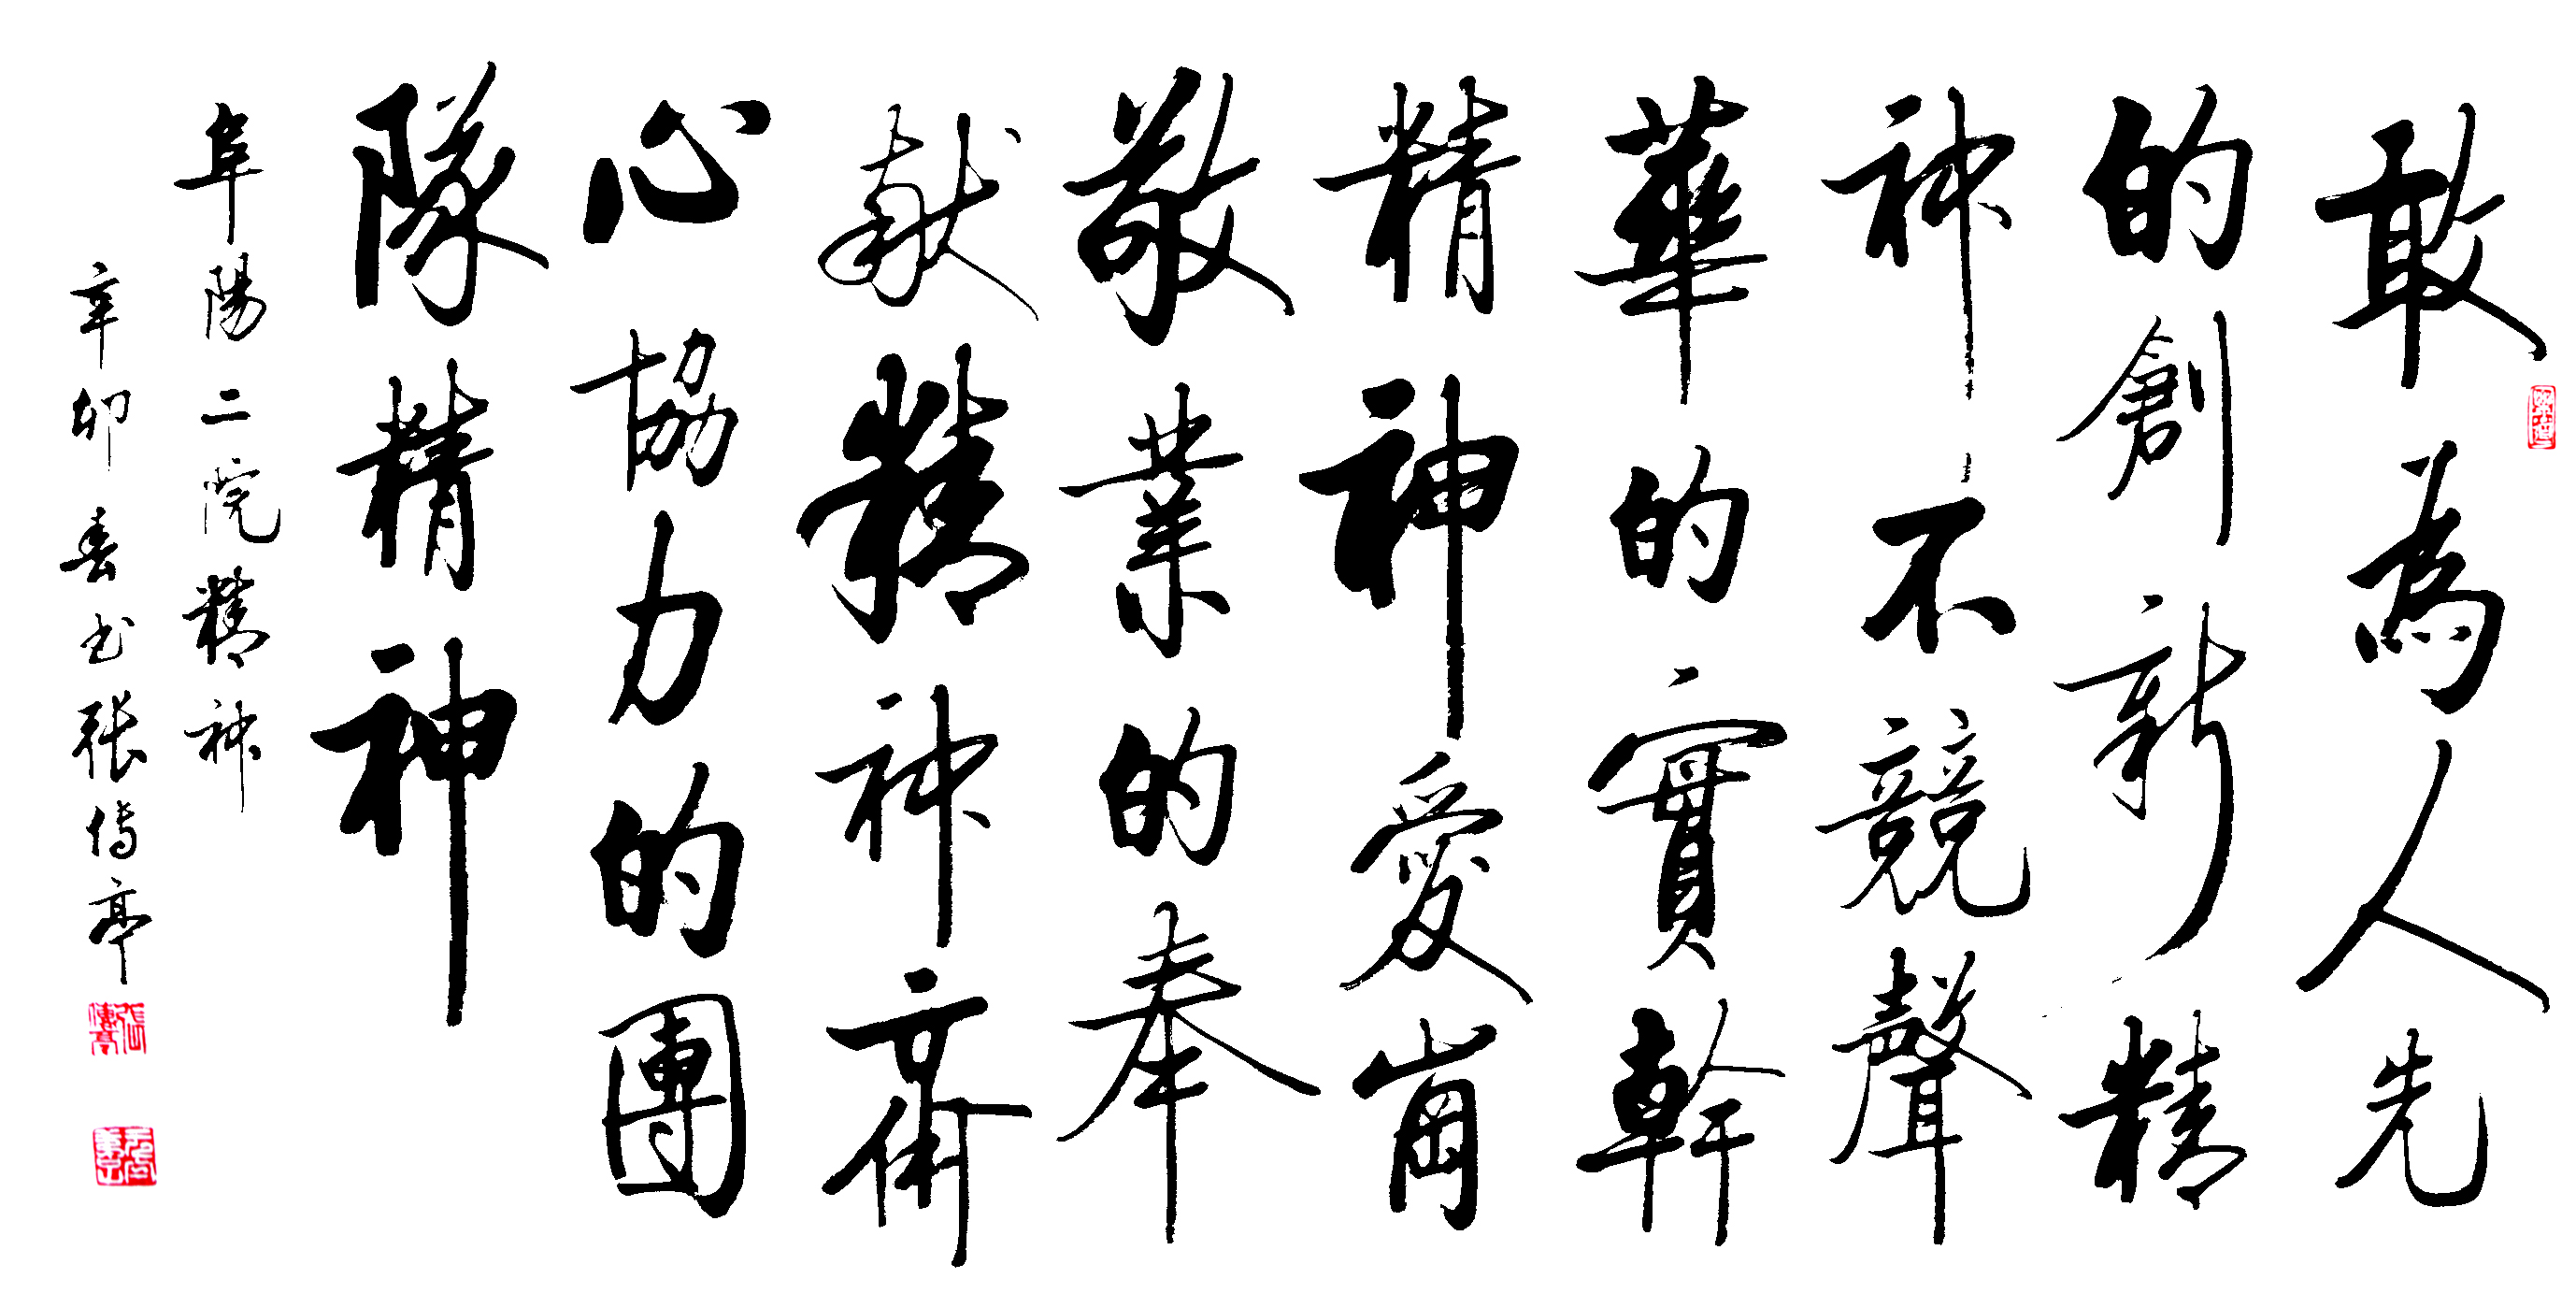 敢為人先
的創新精
神不競聲
華的實幹
精神愛崗
敬業的奉
献精神齊
心協力的團
隊精神
阜陽二院精神
辛卯春书張傳亭
張傳亭